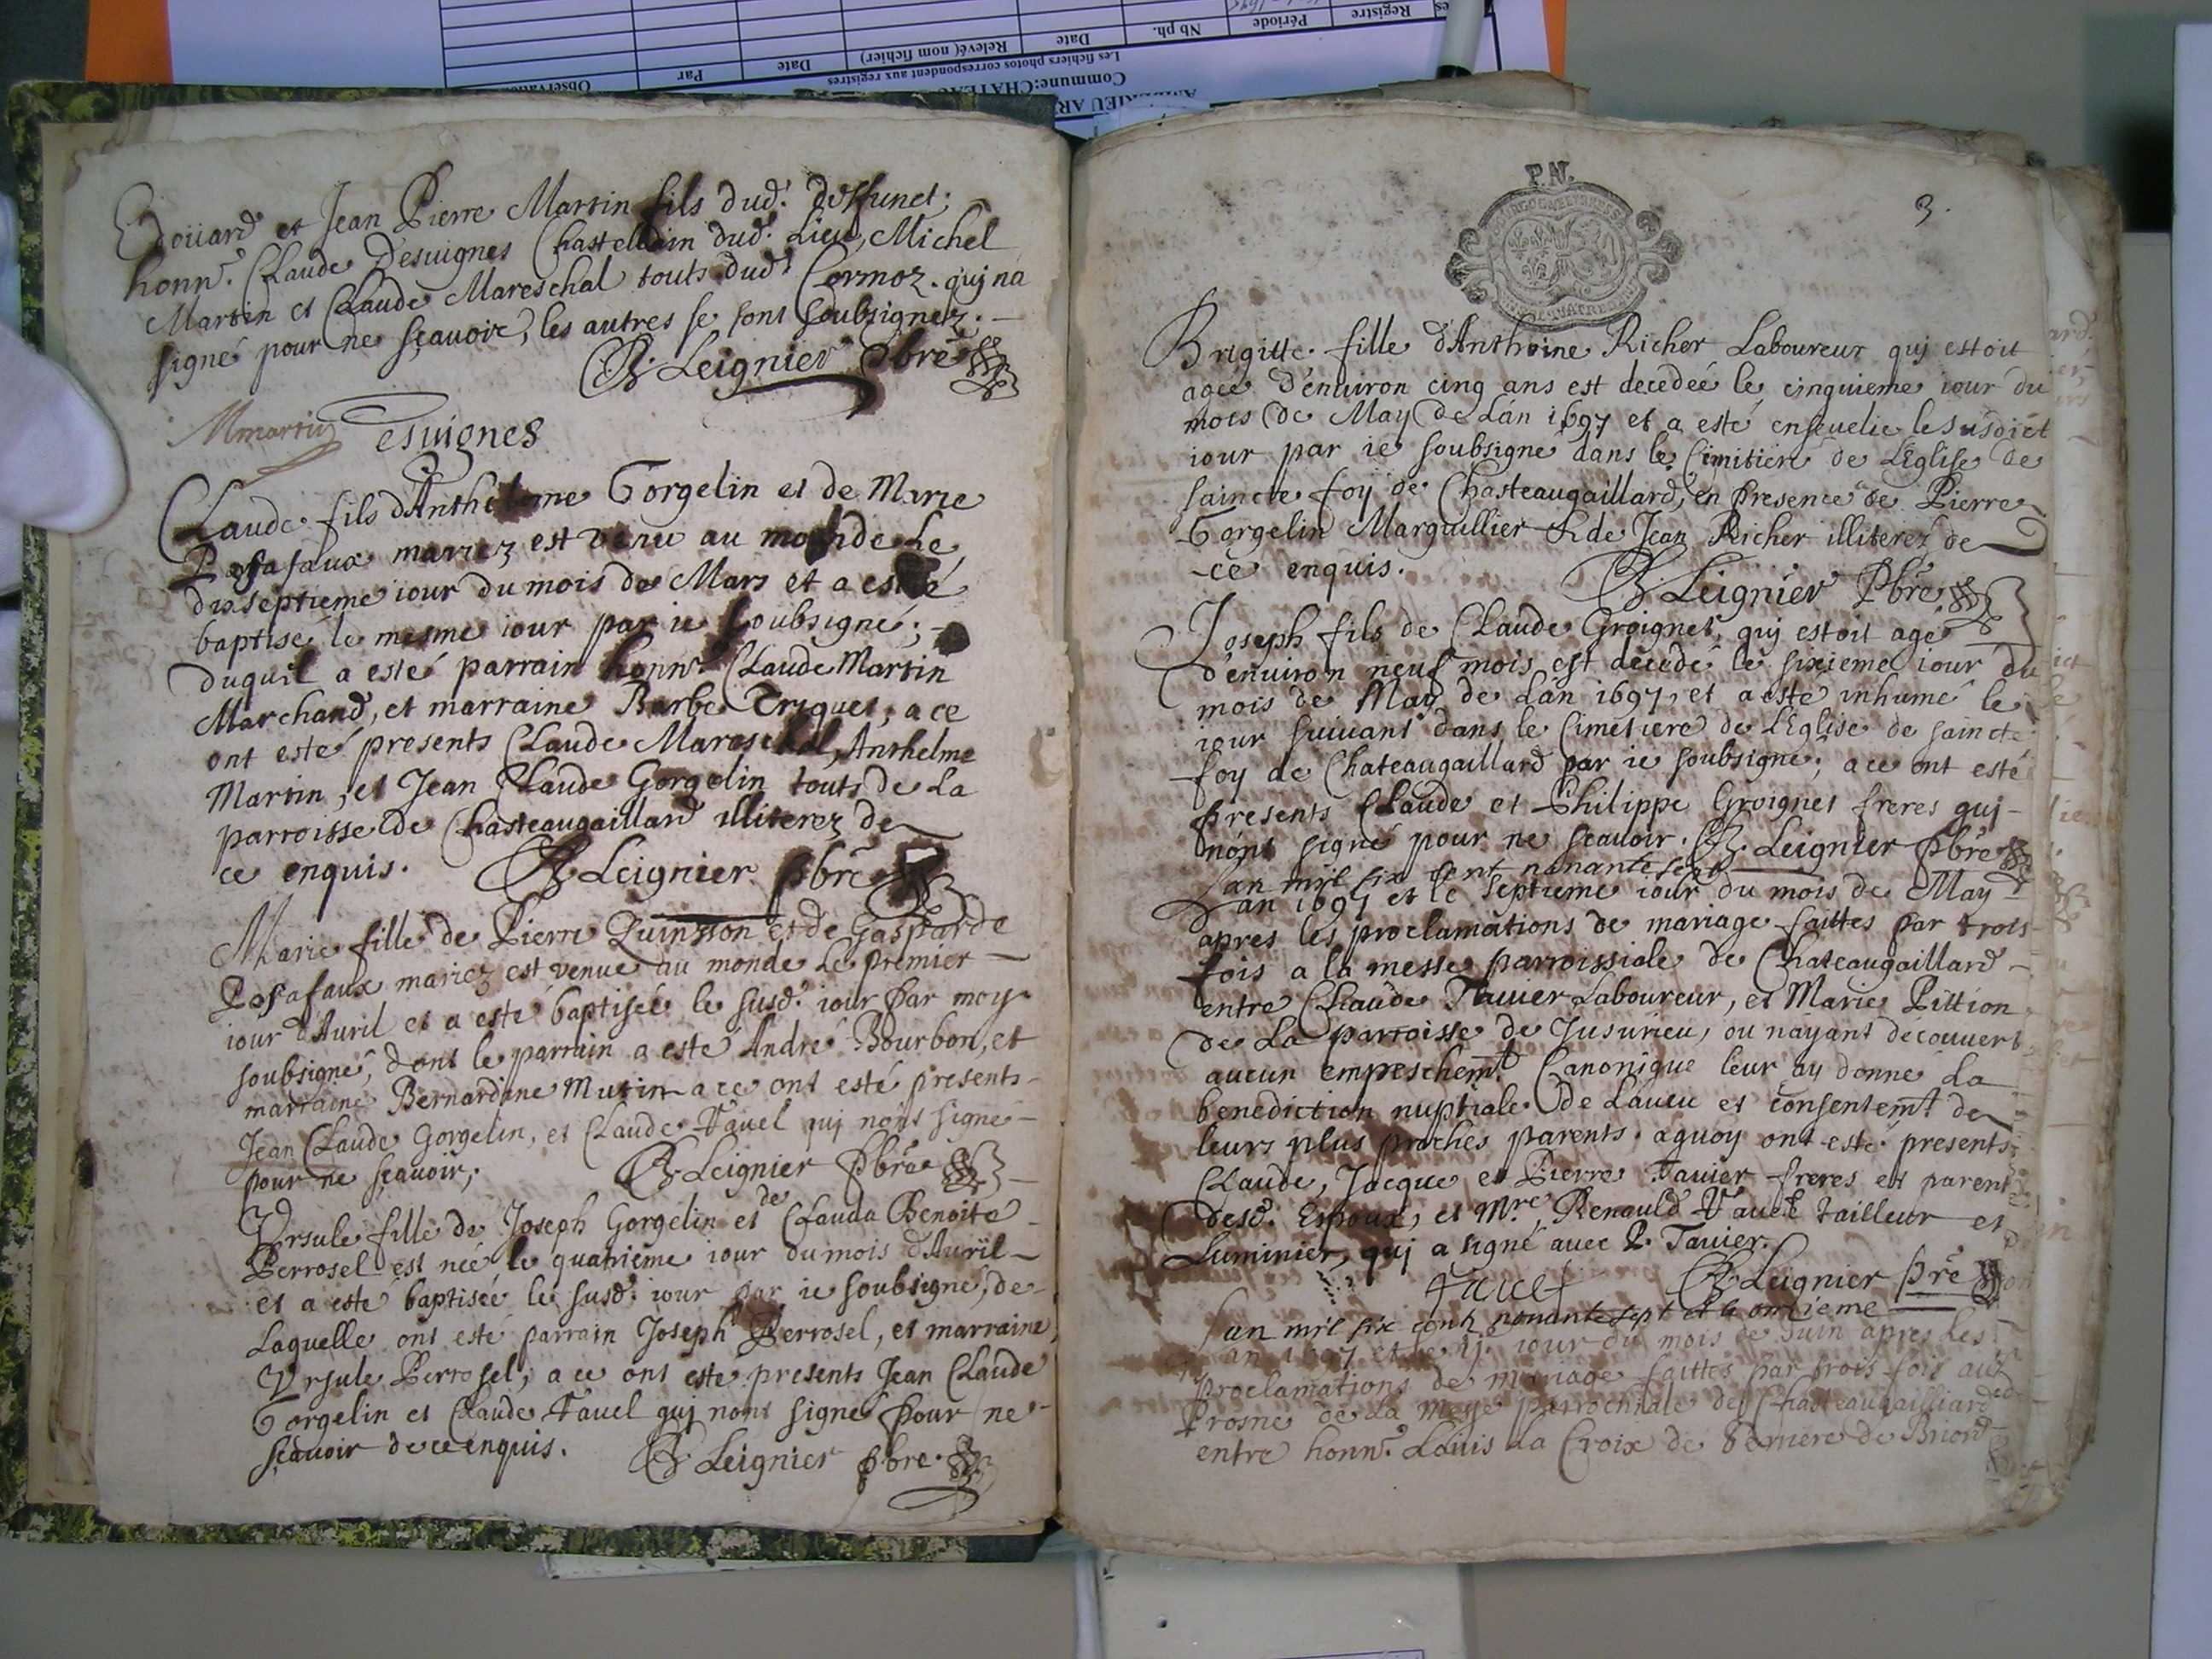 Edoüard et Jean Pierre Martin fils dud. deffunct;
honn. Claude Desuignes Chastellain dud. Lieu, Michel
Martin et Claude Mareschal touts dud. Cormoz. quj na
signé pour ne sçauoir, les autres se sont soubsignez.
Leignier pbre
Mmartin Desuignes
Claude fils dAnthelme Gorgelin et de Marie
Pasafaux mariez est venu au monde Le
dixseptieme iour du mois de Mars et a esté
baptisé le mesme iour par ie soubsigné;
duquel a esté parrain honn. Claude Martin
Marchand, et marraine Barbe Triquet, a ce
ont esté presents Claude Mareschal, Anthelme
Martin, et Jean Claude Gorgelin touts de La
parroisse de Chasteaugaillard illiterez de
ce enquis. Leignier pbre
Marie fille de Pierre Quinsson et de Gasparde
Pasafaux mariez est venue au monde Le premier
iour dAuril et a esté baptisée le susd. iour par moy
soubsigné, dont le parrain a esté André Bourbon, et
marraine Bernardine Mutin a ce ont esté presents
Jean Claude Gorgelin, et Claude Fauel quj nont signé
pour ne sçauoir; Leignier pbre
Vrsule fille de Joseph Gorgelin et de Clauda Benoite
Perrosel est neé le quatrieme iour du mois dAuril
et a este baptiseé le susd. iour par ie soubsigné, de
Laquelle ont esté parrain Joseph Perrosel, et marraine
Vrsule Perrosel, a ce ont esté presents Jean Claude
Gorgelin et Claude Fauel quj nont signé pour ne
sçauoir de ce enquis. Leignier pbre.
P.N.
3.
Brigitte fille dAnthoine Richer Laboureur quj estoit
ageé d'enuiron cinq ans est decedeé le cinquieme iour du
mois de May de Lan 1697 et a esté enseuelie le susdict
iour par ie soubsigné dans le Cimitiere de LEglise de
saincte foy de Chasteaugaillard, en presence de Pierre
Gorgelin Marguillier & de Jean Richer illiterez de
ce enquis. Leignier Pbre
Joseph fils de Claude Groignet, quj estoit agé
d'enuiron neuf mois est decedé le sixieme iour du
mois de May de Lan 1697, et a esté inhumé le
iour suiuant dans le Cimetiere de LEglise de saincte
foy de Chateaugaillard par ie soubsigné; a ce ont esté
presents Claude et Philippe Groignet freres quj
nont signé pour ne scauoir. Leignier pbre
Lan mil six cent nonante sept
Lan 1697 et le septieme iour du mois de May
apres les proclamations de mariage faittes par trois
fois a la messe parroissiale de Chateaugaillard
entre Claude Tauier Laboureur, et Marie Pittion
de La parroisse de Jusurieu, ou nayant decouuert
aucun empeschemt. Canonique leur ay donné La
benediction nuptiale de Laueu et consentemt. de
leurs plus proches parents. aquoy ont esté presents
Claude, Jacque et Pierre Tauier freres et parent
desd. Espoux, et Mre. Renauld Fauel tailleur et
Luminier, quj a signé auec P. Tauier.
Fauel Leignier pre
Lan mil six cent nonante sept et le onzieme
Lan 1697 et le 11. iour du mois de Juin apres Les
Proclamations de mariage faittes par trois fois au
Prosne de La Messe parrochiale de Chasteaugailliard
entre honn. Loüis La Croix de de Briord
Commune:CHATEAU
Les fichiers photos correspondent aux registres
Registre Période Nb ph. Date Relevé( nom fichier) Date Par